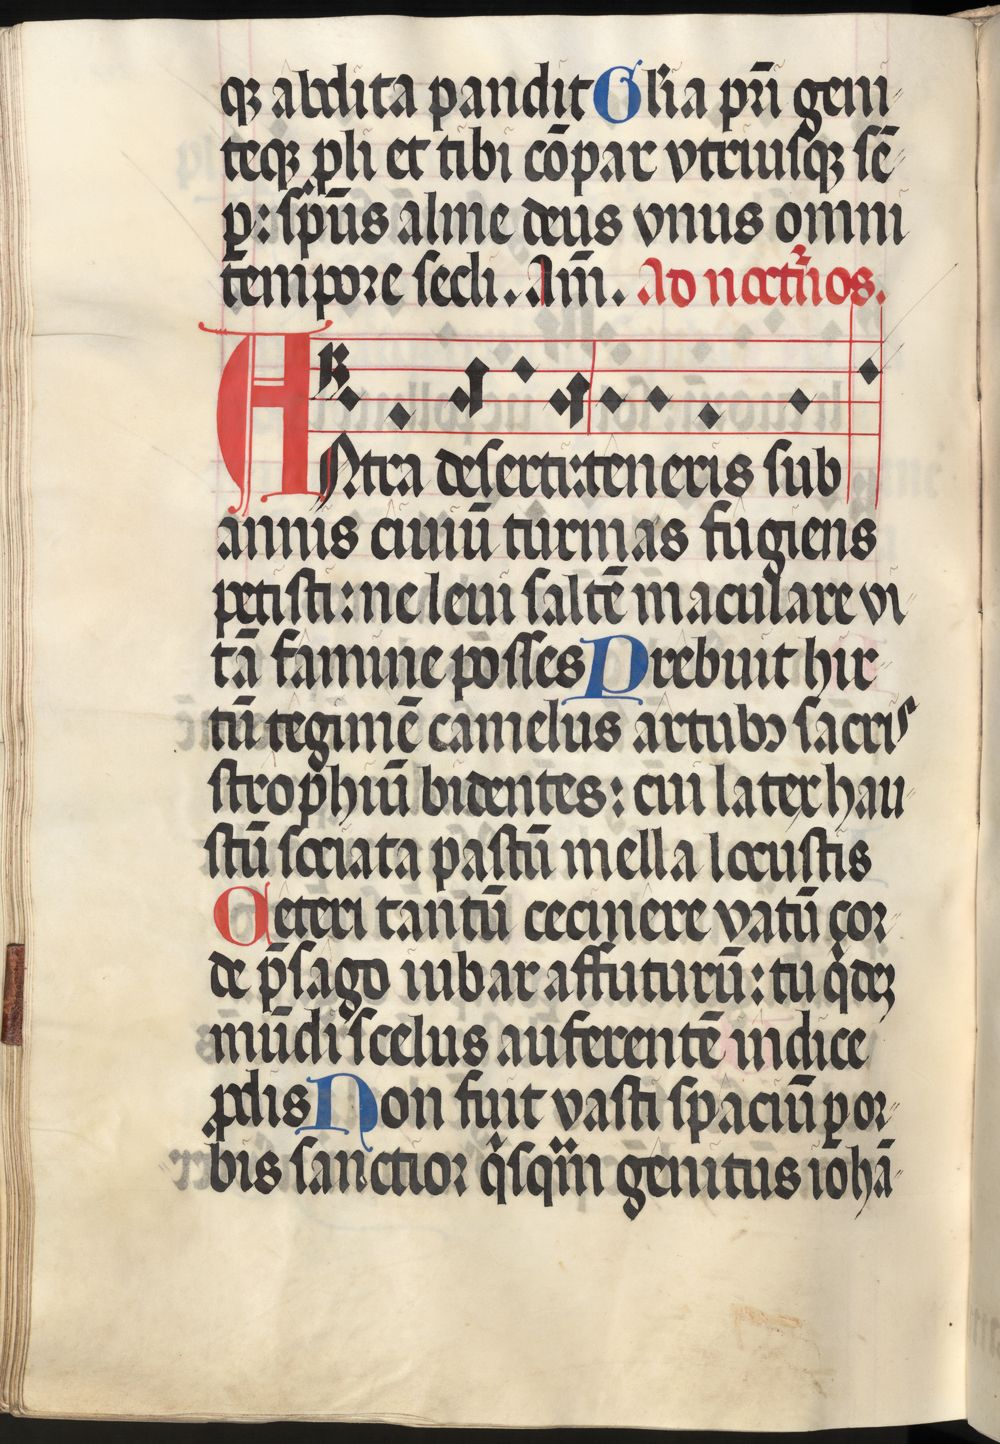 qꝫ abdita pandit Glia pr̄i geni
teqꝫ ꝓli et tibi cōpar vtriusqꝫ sē
ꝑ: sp̄us alme deus vnus omni
tempore secli. Am̄. Ad noctn̄os.
ANtra deserti: teneris sub
annis ciuiū turmas fugiens
petisti: ne leui saltē maculare vi
tā famine posses Prebuit hir
tū tegimē camelus artubꝫ sacris
strophiū bidentes: cui latex hau
stū sociata pastū mella locustis
Ceteri tantū cecinere vatū cor
de p̄sago iubar affuturū: tu qͥdeꝫ
mūdi scelus auferentē indice
ꝓdis Non fuit vasti spaciū ꝑ or
bis sanctior qͥsqͣm genitus iohā